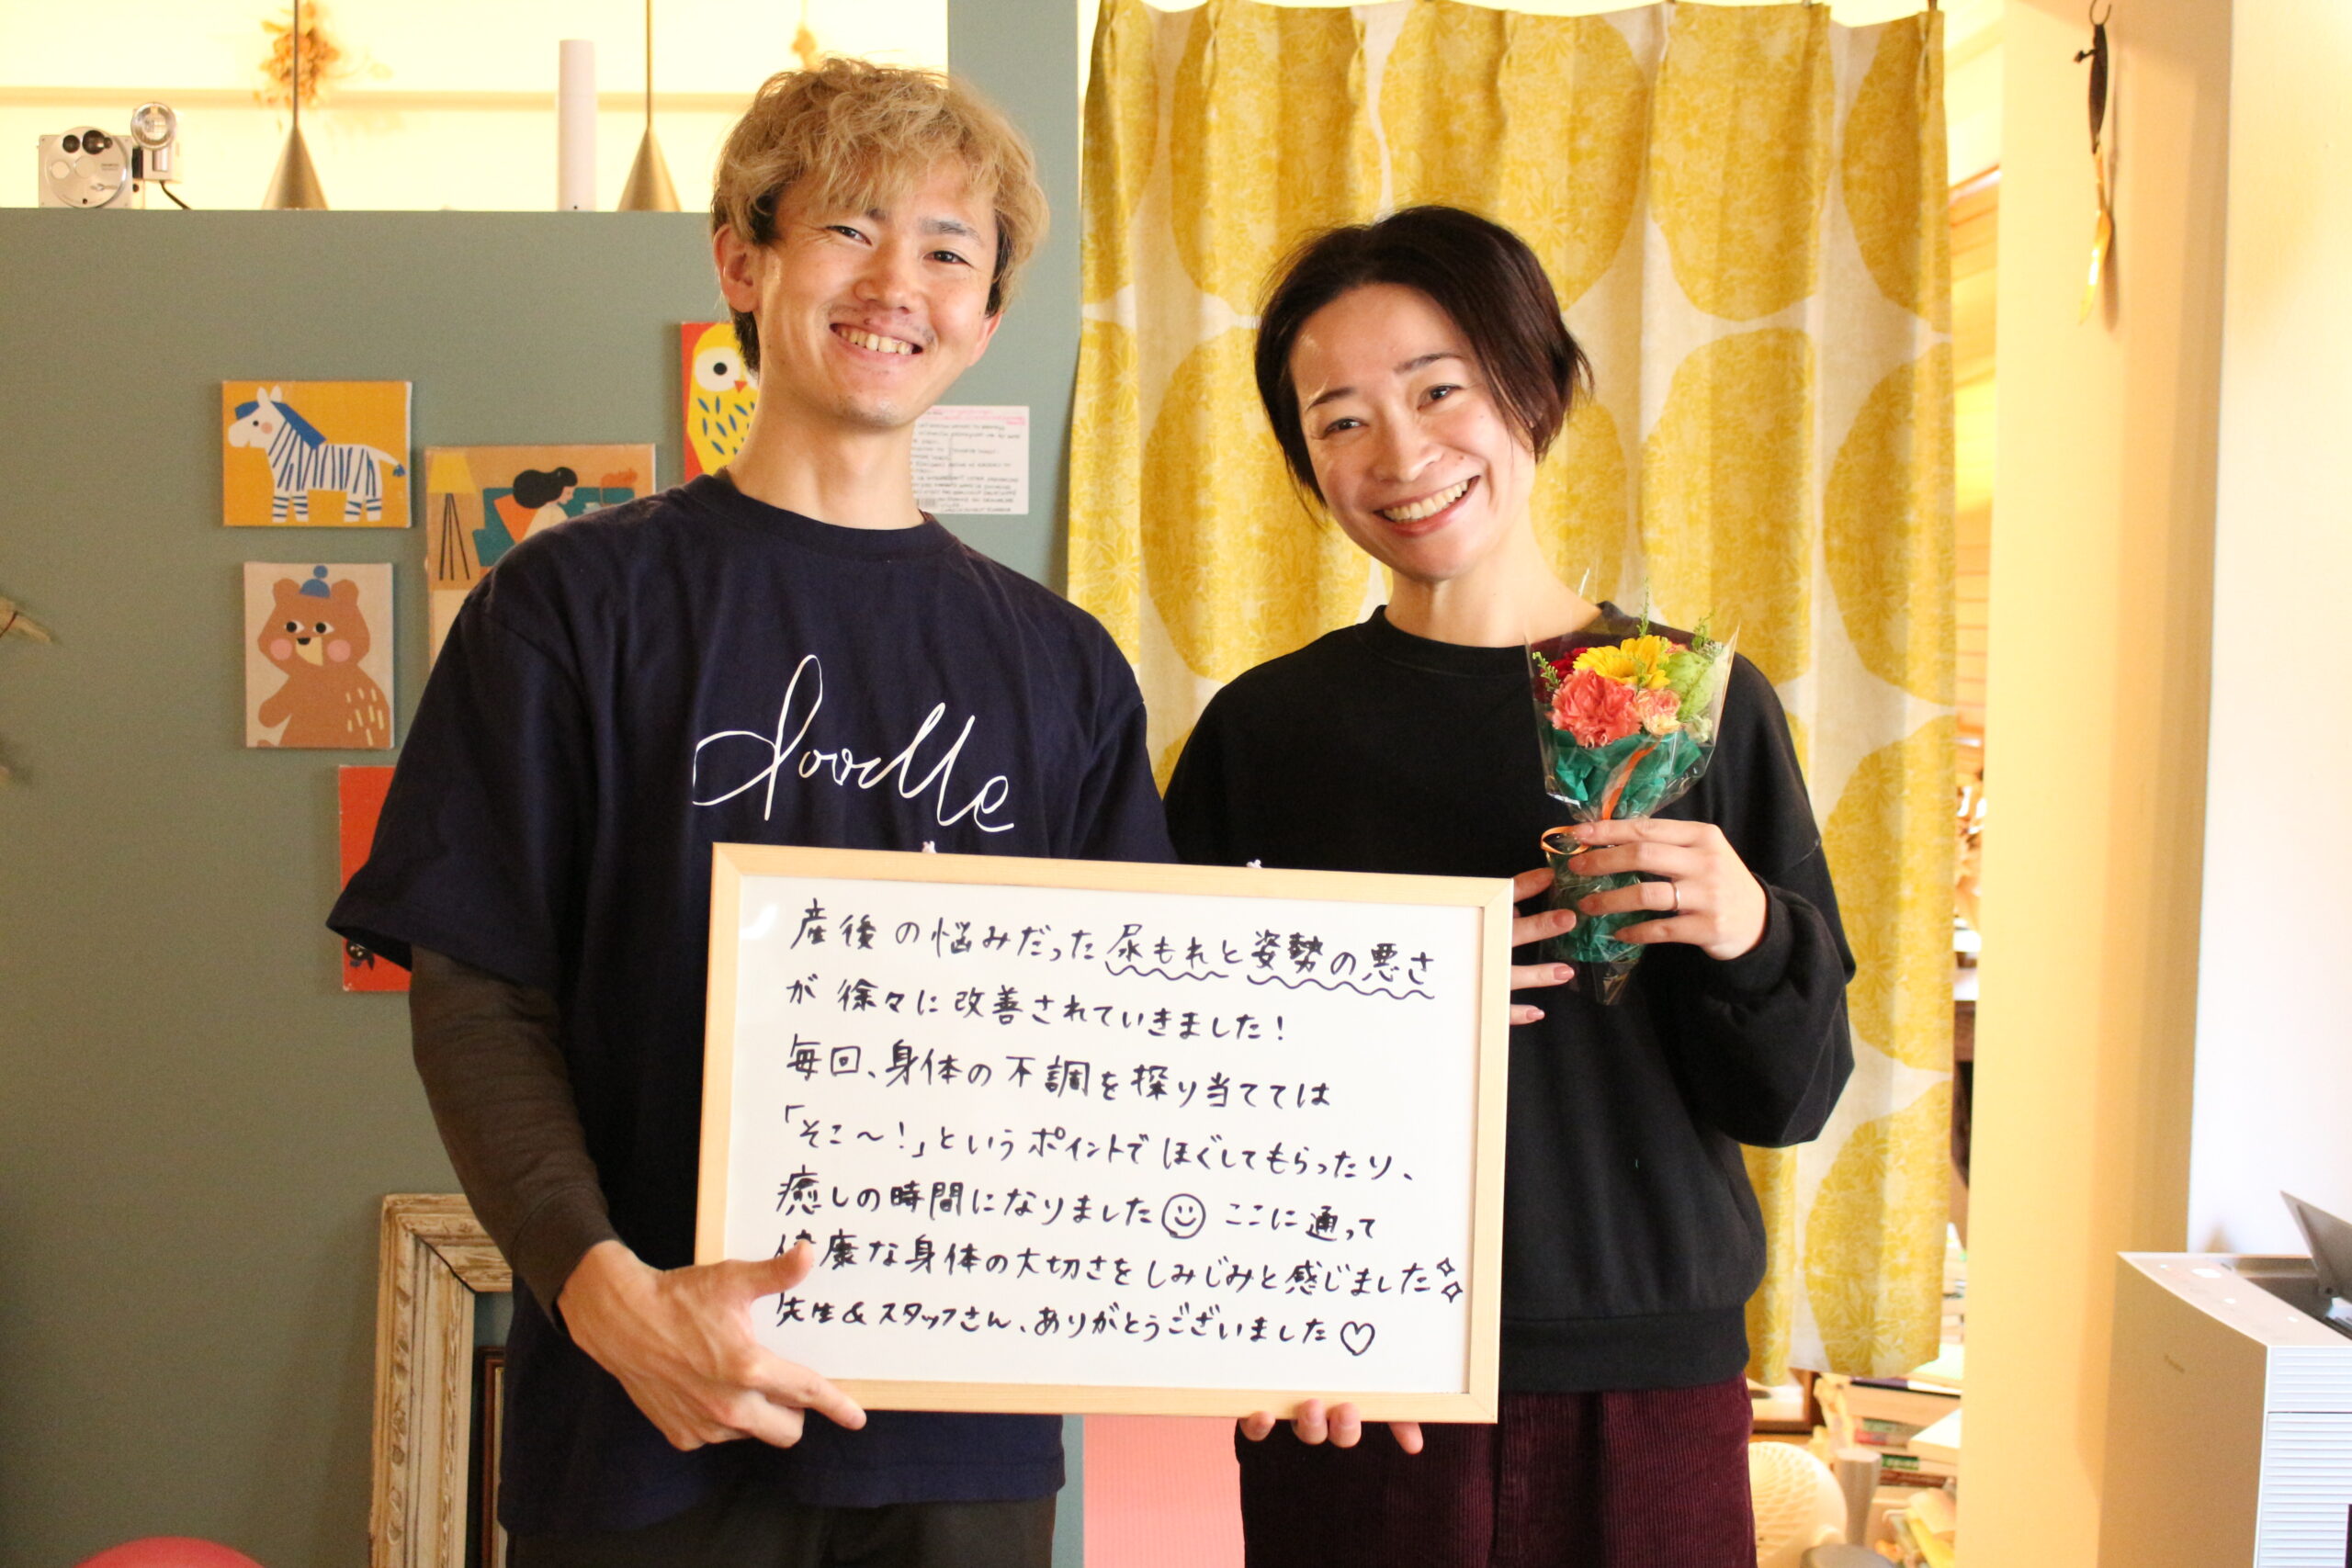 doodle
産後の悩みだった尿もれと姿勢の悪さ
が徐々に改善されていきました!
毎回、身体の不調を探り当てては
「そこ〜!」というポイントでほぐしてもらったり、
癒しの時間になりました☺ ここに通って
健康な身体の大切さをしみじみと感じました✧✧
先生&スタッフさん、ありがとうございました♡